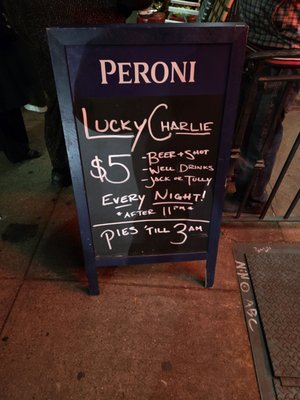 PERONI
LUCKY CHARLIE
$5
- BEER + SHOT
- WELL DRINKS
- JACK OR TULLY
EVERY NIGHT!
*AFTER 11PM*
PIES 'TILL 3AM